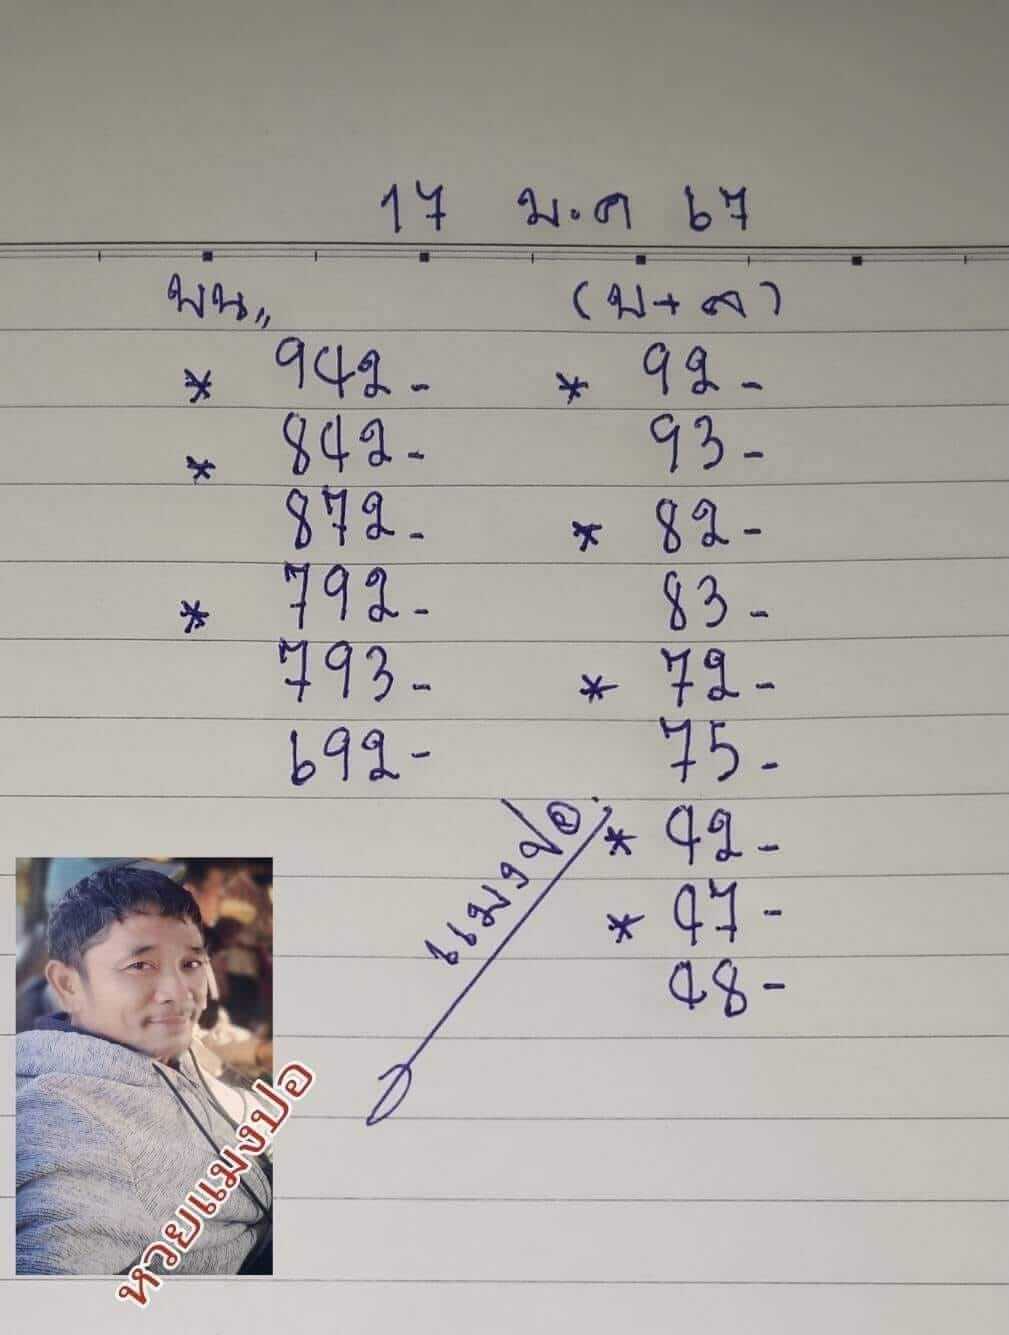 17 ม.ค 67
บน,, (บ+ล)
* 942- * 92-
* 842- 93-
872- * 82-
* 792- 83-
793- * 72-
692- 75-
* 42-
* 47-
48-
แมงปอ
หวยแมงปอ